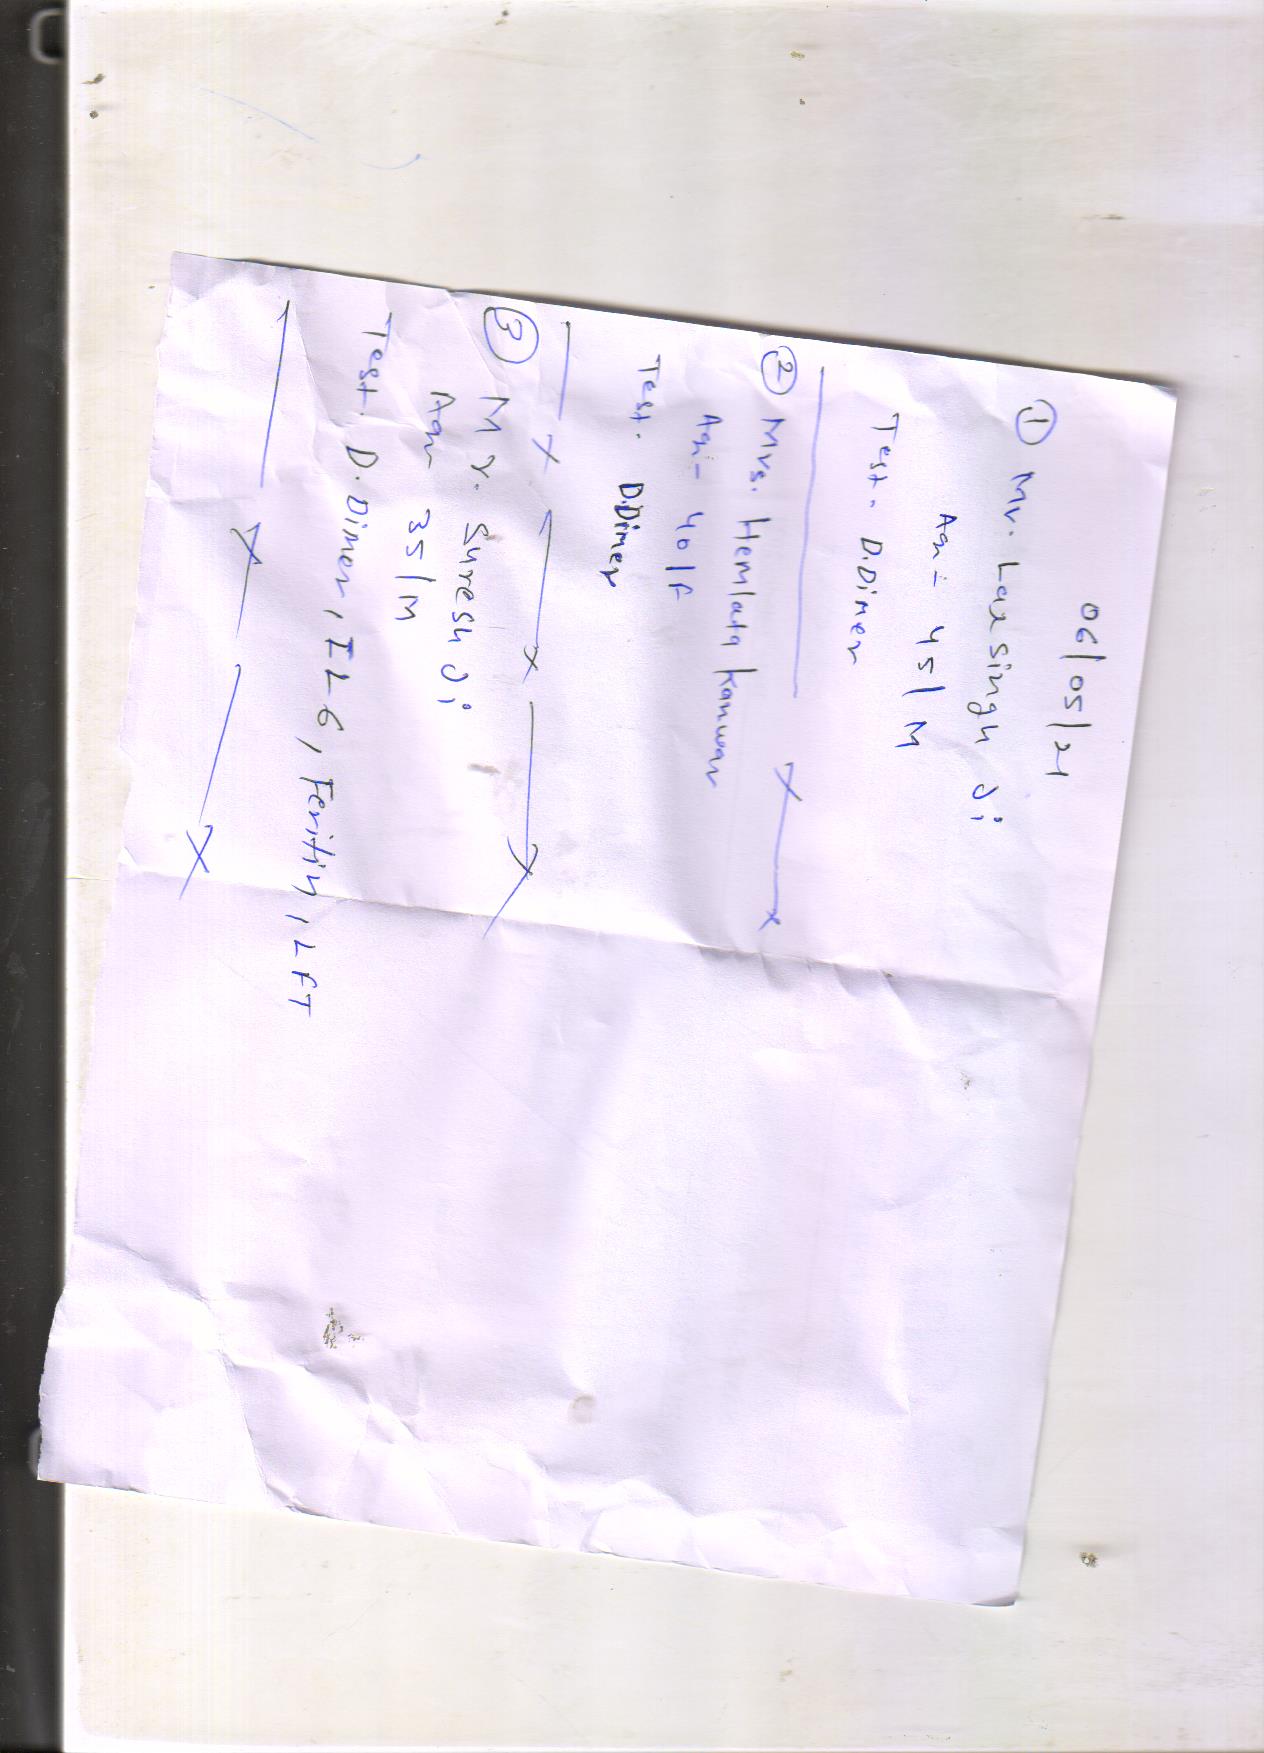 06/05/21
① Mr. Lax singh Ji
Age - 45/M
Test. D.Dimer
② Mrs. Hemlata kanwar
Age - 40/F
Test. D.Dimer
③ Mr. Suresh Ji
Age 35/M
Test. D.Dimer, IL6, Feritin, LFT